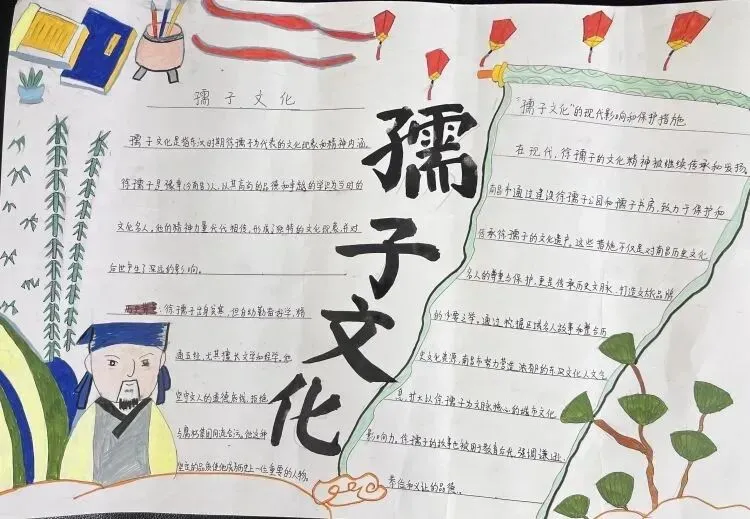 孺子文化
孺子文化是指东汉时期徐孺子为代表的文化现象和精神内涵。
徐孺子是豫章(今南昌)人,以其高尚的品德和卓越的学识为当时的
文化名人。他的精神力量代代相传,形成了独特的文化现象,并对
后世产生了深远的影响。
徐孺子出身贫寒,但自幼勤奋好学,精
通五经,尤其擅长文学和经学。他
坚守文人的道德底线,拒绝
与腐朽势同流合污。他这种
坚定的品质使他成为历史上一位重要的人物。
孺子文化
"孺子文化"的现代影响和保护措施
在现代,徐孺子的文化精神被继续传承和发扬。
南昌市通过建设徐孺子公园和孺子书房,致力于保护和
传承徐孺子的文化遗产。这些措施不仅是对南昌历史文化
名人的尊重与保护,更是传承历史文脉,打造文旅品牌
的必要之举。通过挖掘区域名人故事和整合历
史文化资源,南昌市努力营造浓郁的东汉文化人文气
息,扩大以徐孺子为文脉核心的城市文化
影响力。徐孺子的故事也被用于教育后代,强调谦逊、
恭俭和义让的品德。